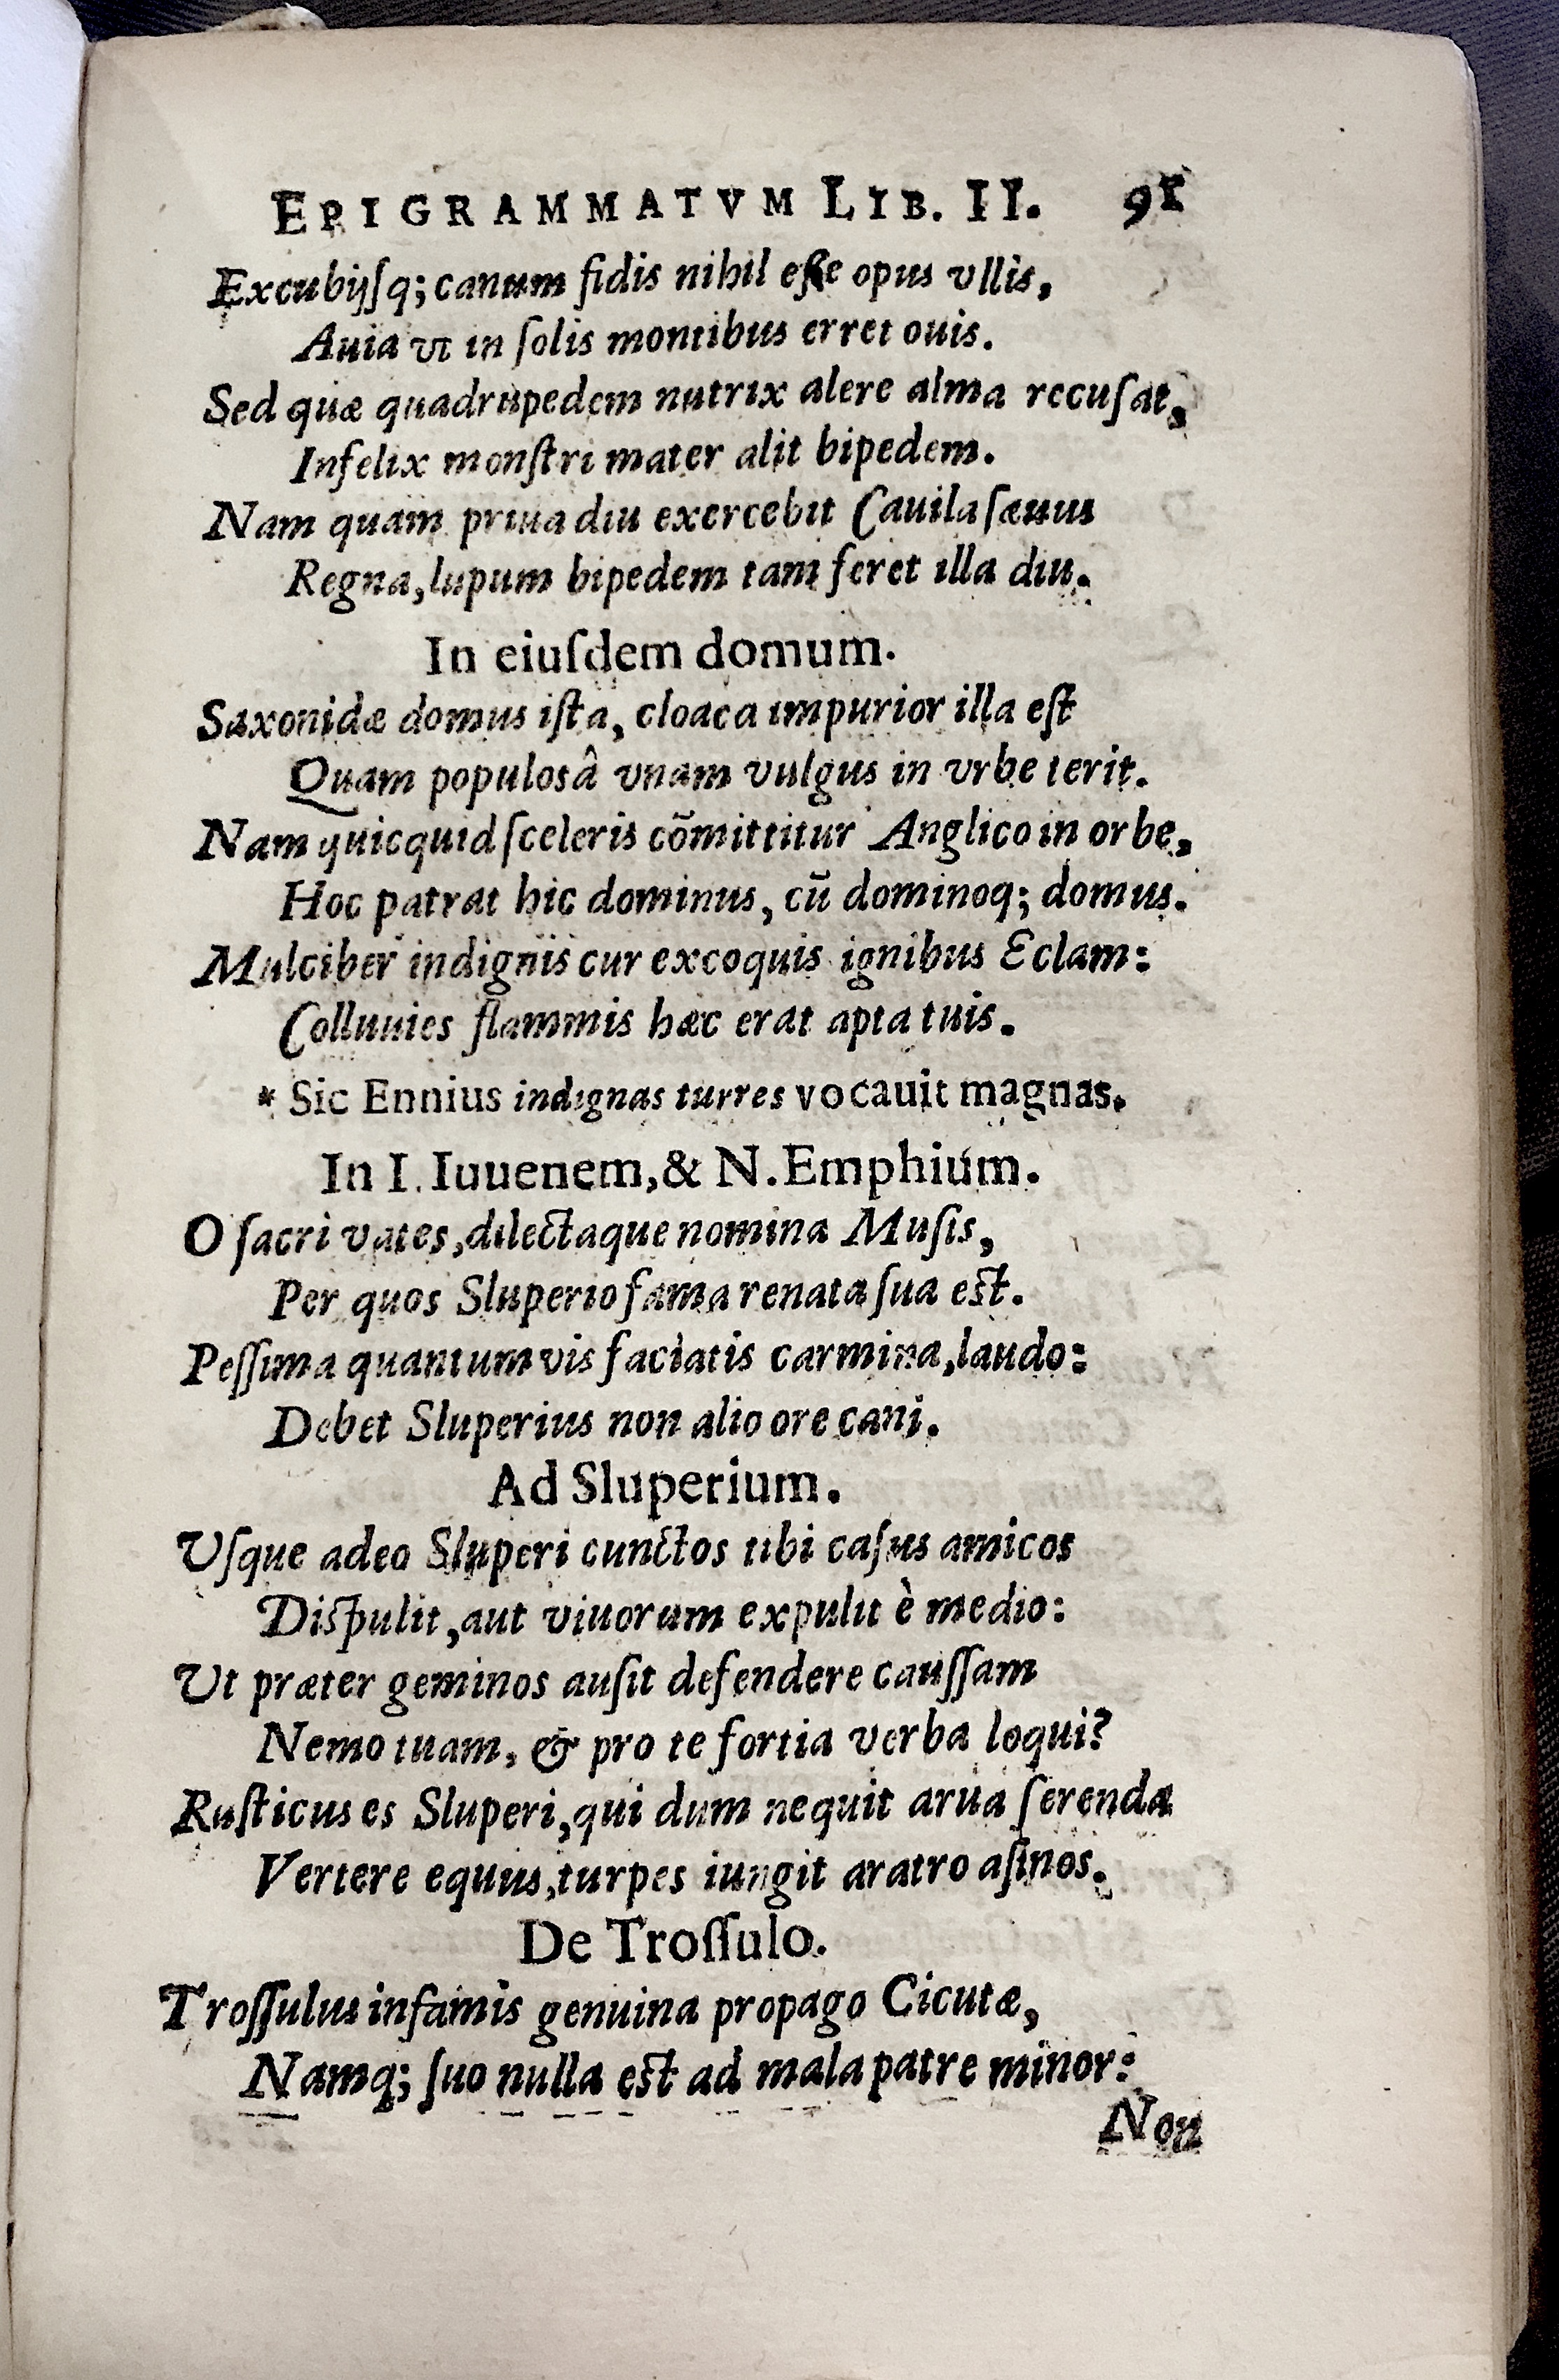 EPIGRAMMATVM LIB. II. 91
Excubijſq; canum fidis nihil eſſe opus vllis,
Auia vt in ſolis montibus erret ouis.
Sed quæ quadrupedem nutrix alere alma recuſat,
Infelix monſtri mater alit bipedem.
Nam quam priua diu exercebit Cauila ſæuus
Regna, lupum bipedem tam feret illa diu.
In eiuſdem domum.
Saxonidæ domus iſta, cloaca impurior illa eſt
Quam populosâ vnam vulgus in vrbe terit.
Nam quicquid ſceleris cõmittitur Anglico in orbe,
Hoc patrat hic dominus, cũ dominoq; domus.
Mulciber indignis cur excoquis ignibus Eclam:
Colluuies flammis hæc erat apta tuis.
* Sic Ennius indignas turres vocauit magnas.
In I. Iuuenem, & N. Emphium.
O ſacri vates, dilectaque nomina Muſis,
Per quos Sluperio fama renata ſua eſt.
Peſſima quantumvis faciatis carmina, laudo:
Debet Sluperius non alio ore cani.
Ad Sluperium.
Uſque adeo Sluperi cunctos tibi caſus amicos
Diſpulit, aut viuorum expulit è medio:
Ut præter geminos auſit defendere cauſſam
Nemo tuam, & pro te fortia verba loqui?
Ruſticus es Sluperi, qui dum nequit arua ſerenda
Vertere equus, turpes iungit aratro aſinos.
De Troſſulo.
Troſſulus infamis genuina propago Cicutæ,
Namq; ſuo nulla eſt ad mala patre minor:
Non